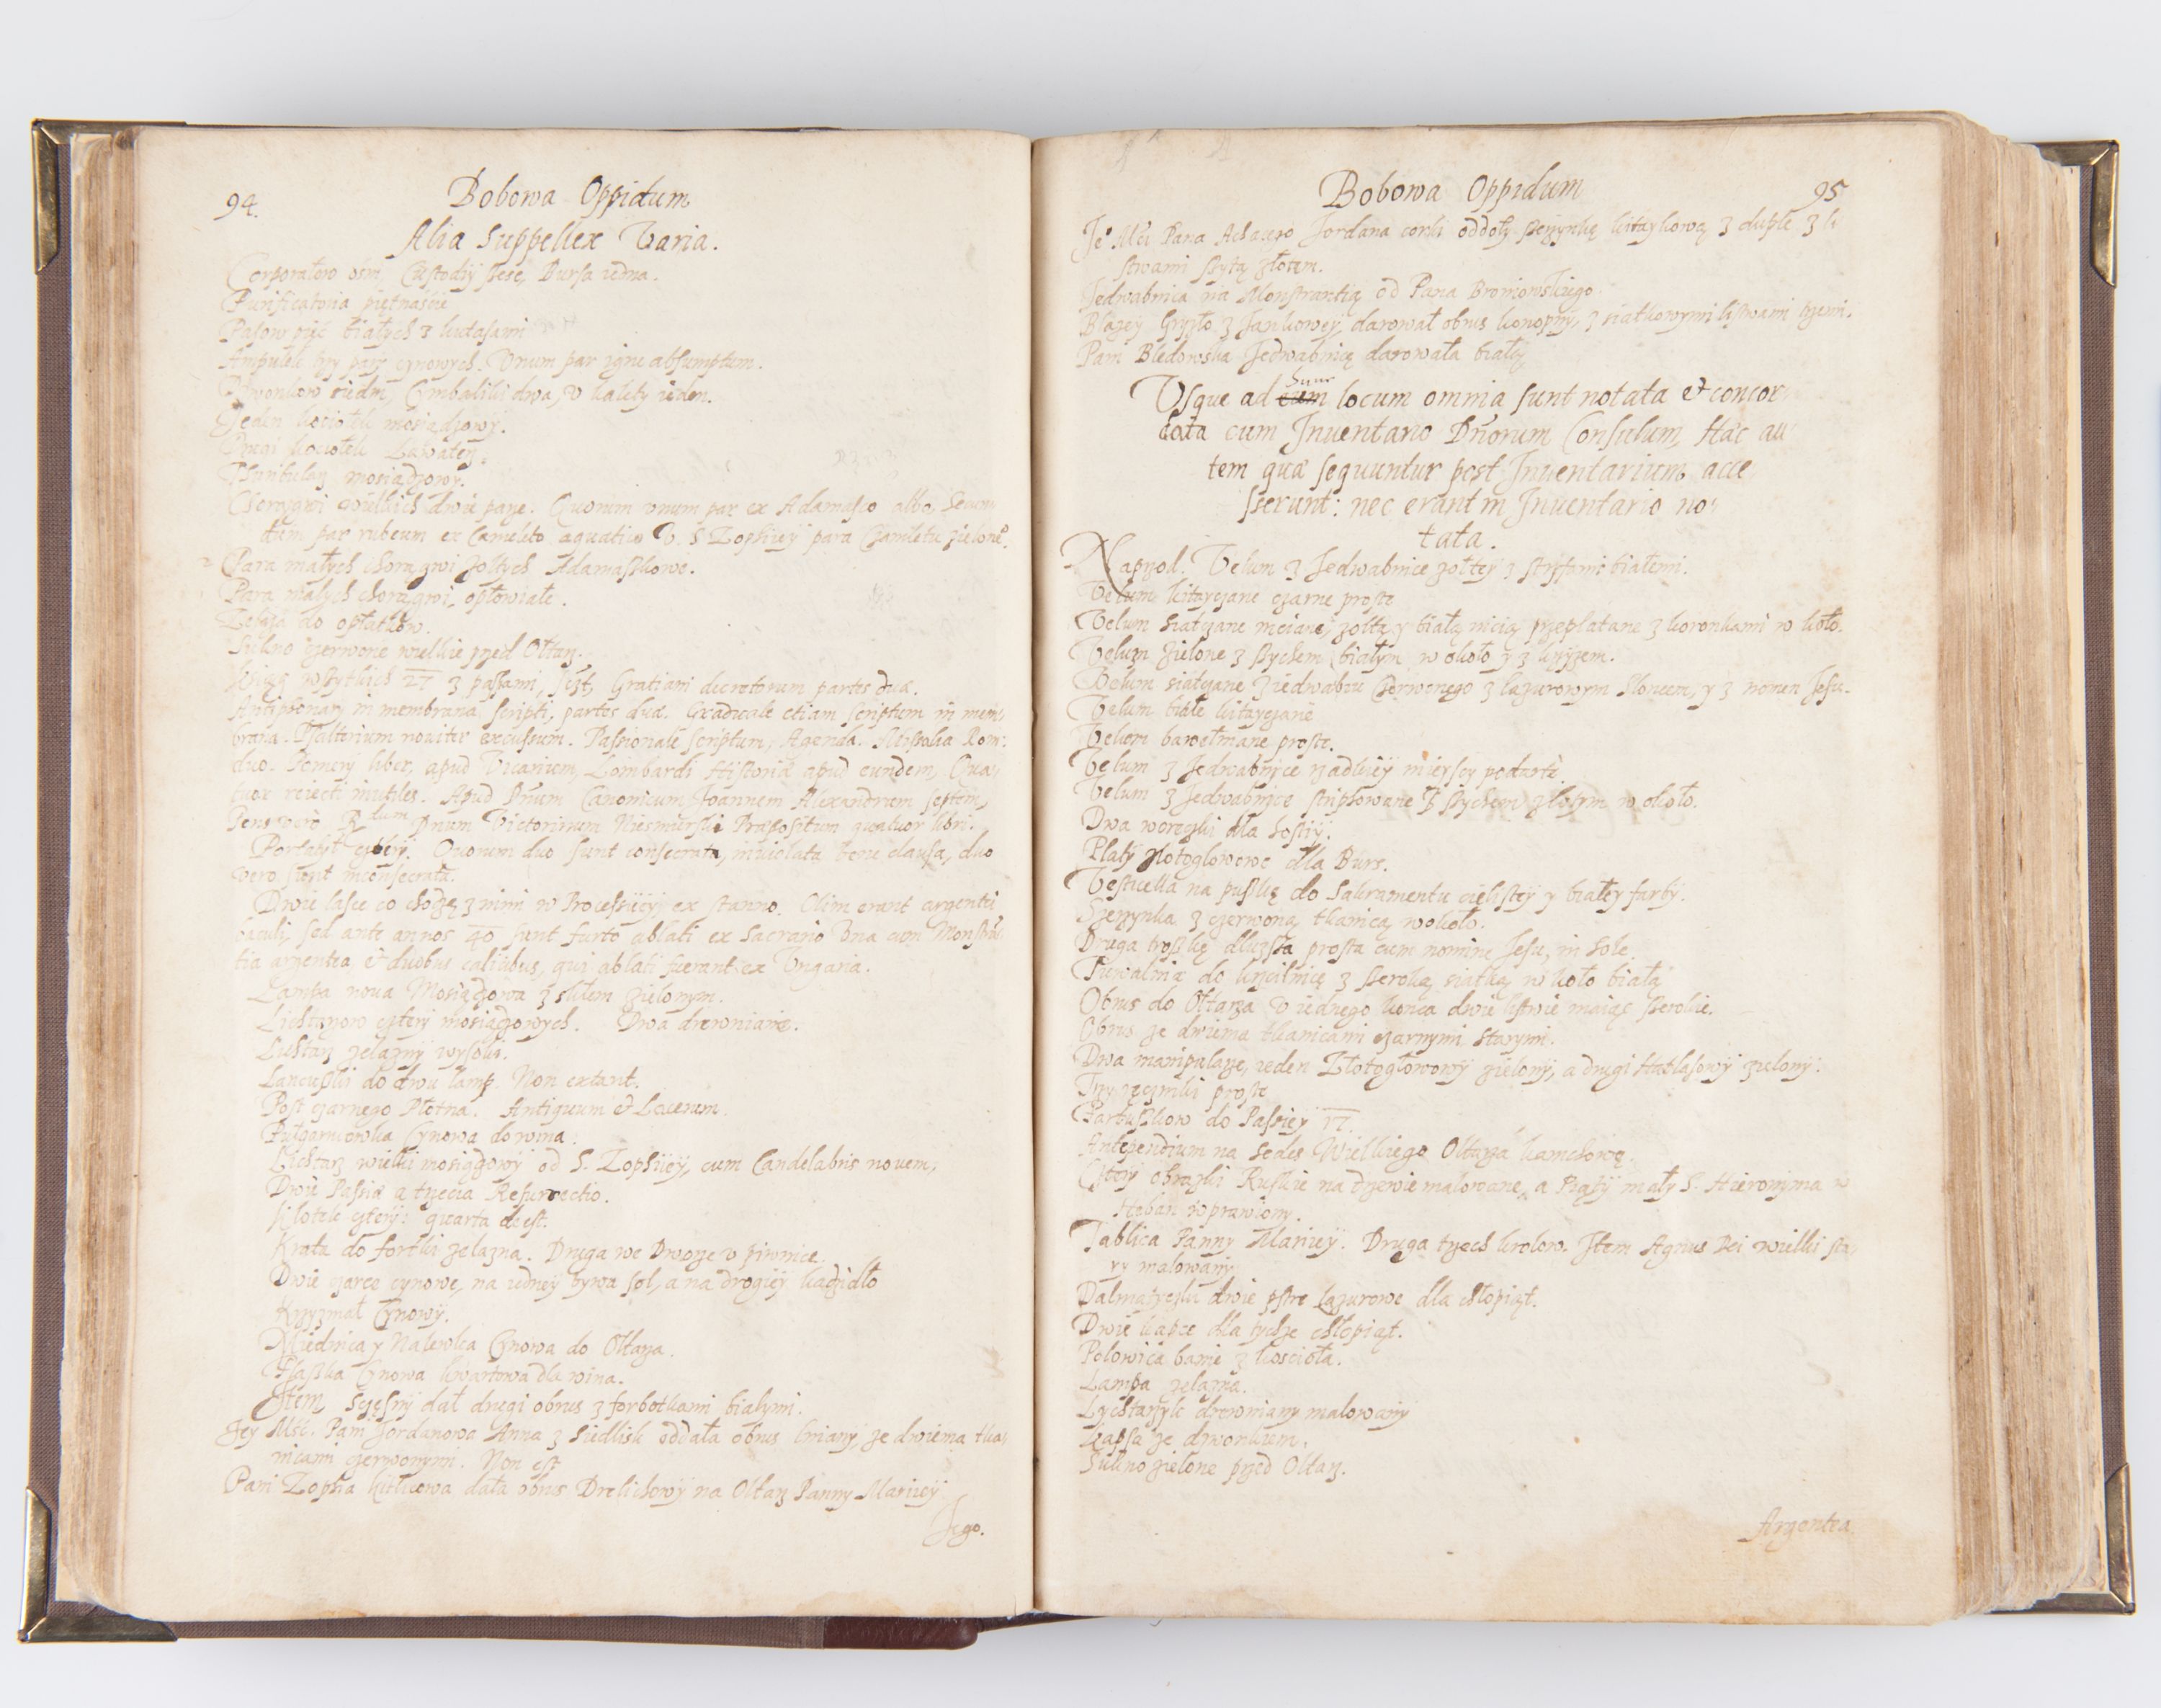 94.
Bobowa Oppidum
Alia Suppellex Varia.
Corporałow ośm, Custodiy sześć, Bursa iedna.
Purificatoria piętnascie
Pasow pięć białych z kutasami
Ampułek trzy pary cynowych. Vnum par igne absumptum.
Dzwonkow siedm, Cymbaliki dwa, v kalety ieden.
Jeden kociołek mosiądzowy.
Drugi kociołek
Thuribularz mosiądzowy.
Chorągwi wielkich dwie parze. Quorum vnum par ex Adamasco albo, Secun
dum par rubeum ex Cameleto aquatico V. S Zophiey para Czamletu zieloné.
Para małych chorągwi zołtych Adamaszkowe.
Para małych chorągwi, opłowiałe.
Zelaza do opłatkow.
Sukno czerwone wielkie przed Ołtarz.
Ksiąg wszytkich 27 z passami, Gratiani decretorum partes duæ.
Antiphonarz in membrana scripti, partes duæ. Graduale etiam scriptum in mem
brana. Psalterium nouiter excussum. Passionale scriptum, Agenda. Missalia Rom:
duo. liber, apud Vicarium, Lombardi Historia apud eundem, Qua
tuor reiecti inutiles. Apud Dnum Canonicum Joannem Alexandrum septem,
Penes vero Rdum Dnum Victorinum Niesmierski Præpositum quatuor libri.
Portatyl cztery. Quorum duo sunt consecrata, inuiolata bene clausa, duo
vero sunt inconsecrata.
Dwie lasce co chodzą z nimi w Processiey, ex stanno. Olim erant argentei
baculi, sed ante annos 40 sunt furto ablati ex Sacrario vna cum Monstra
tia argentea, et duobus calicibus, qui ablati fuerant ex Vngaria.
Lampa noua Mosiądzowa z skłem zielonym.
Lichtarzow cztery mosiądzowych. Dwa drewniane.
Lichtarz zelazny wysoki.
Lancuszki do dwu lamp. Non extant.
Post czarnego Płotna. Antiquum et Lacerum.
Pułgarncowka Cynowa do wina.
Lichtarz wielki mosiądzowy od S. Zophiiey, cum Candelabris nouem.
Dwie Passiæ a trzecia Resurrectio.
Kłotek cztery: quarta deest.
Krata do fortki zelazna. Druga we Dworze v piwnice.
Dwie czarce cynowe, na iedney bywa sol, a na drogiey kadzidło
Krzyzmał Cynowy.
Miednica y Nalewka Cynowa do Ołtarza.
Flaszka Cynowa kwartowa dla wina.
Item, Szczęsny dał drugi obrus z forbotkami białymi.
Jey Mść. Pani Jordanowa Anna z Siedlisk oddała obrus lniany ze dwiema tka
nicami czerwonymi. Non est
Pani Zophia Kitlicowa dała obrus Drelichowy na Ołtarz Panny Mariiey
Jego.
Bobowa Oppidum
95
Jeo Mći Pana Achacego Jordana corki oddały szczynkę kitaykową z duple z li
stwami szytą złotem.
Jedwabnica na Monstrantią od Pana Broniowskiego
Błazey Gryzło z Jankowey, darował obrus konopny, z siatkowymi listwami trzemi.
Pani Bledowska Jedwabnicę darowała białą
Vsque ad hunc locum omnia sunt notata et concor
data cum Inuentario Dnorum Consulum, Hæc au
tem quæ sequuntur post Inuentarium acce
sserunt: nec erant in Inuentario no
tata.
Naprzod. Velum z Jedwabnice zołtey z stryfami białemi.
Velum kitayczane czarne proste
Velum siatczane niciane, zołtą y białą nicią przeplatane z koronkami w koło.
Velum zielone z sychem białym w około y z krzyzem.
Velum siatczane z iedwabiu Czerwonego z lazurowym Słoncem, y z nomen Jesu.
Velum białe kitayczane
Velum bawełniane proste.
Velum z Jedwabnice rzadkiey mieyscy podarte.
Velum z Jedwabnice striphowane z sychem złotym w około.
Dwa woreczki dla hostiy.
Płaty złotogłowowe dla Burs.
Vesticella na puszkę do Sakramentu cielistey y białey farby.
Szczynka z czerwoną tkanicą wokoło.
Druga troszkę dłuzsza prosta cum nomine Jesu, in Sole.
Tuwalnia do krzcilnice z szeroką siatką w koło białą
Obrus do Ołtarza v iednego konca dwie listwie maiąc szerokie.
Obrus ze dwiema tkanicami czarnymi starymi.
Dwa manipularze, ieden Złotogłowowy zielony, a drugi Hatłasowy zielony.
Trzy ręczniki proste
Partuszkow do Passiey 17.
Antependium na Sedes Wielkiego Ołtarza kamchowe.
Cztery obrazki Ruskie na drzewie malowane, a Piąty mały S. Hieronyma w
Heban wprawiony.
Tablica Panny Mariiey. Druga trzech krolow. Item Agnus Dei wielki sta
ry malowany
Dalmatyczki dwie pstre Lazurowe dla chłopiąt.
Dwie kapce dla tychze chłopiąt.
Połowica banie z koscioła.
Lampa zelazna.
Lychtarzyk drewniany malowany
Kapsa ze dzwonkiem.
Sukno zielone przed Ołtarz.
Argentea